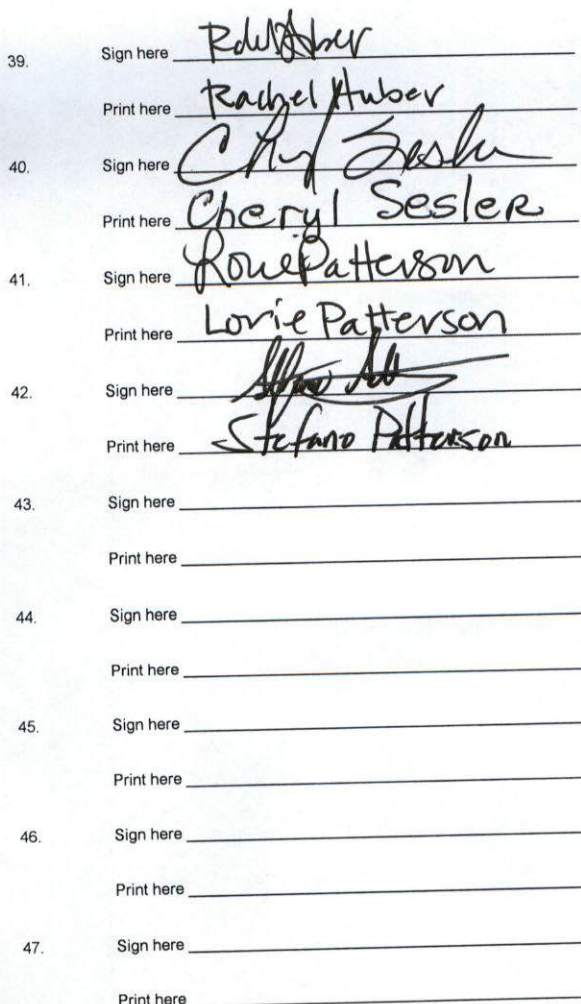 39. Sign here
Print here Rachel Huber
40. Sign here
Print here Cheryl Sesler
41. Sign here Lorie Patterson
Print here Lorie Patterson
42. Sign here
Print here Stefano Patterson
43. Sign here
Print here
44. Sign here
Print here
45. Sign here
Print here
46. Sign here
Print here
47. Sign here
Print here